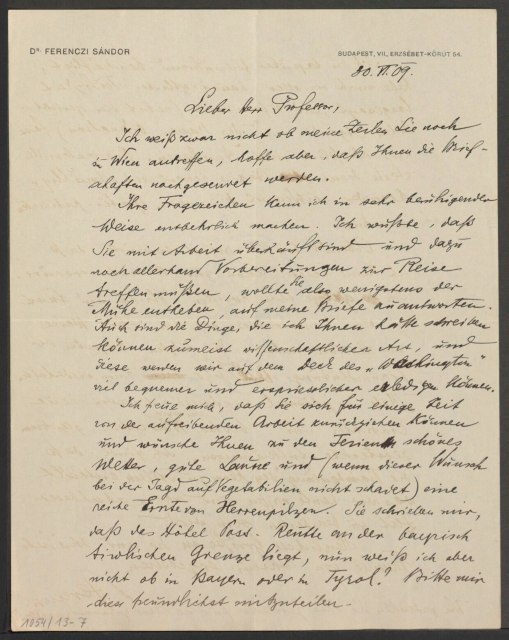 Dr. FERENCZI SÁNDOR
BUDAPEST, VII., ERZSÉBET-KÖRÚT 54.
30. VI. 09.
Lieber Herr Professor,
Ich weiß zwar nicht ob meine Zeilen Sie noch
in Wien antreffen, hoffe aber, daß Ihnen die Brief-
schaften nachgesendet werden.
Ihre Fragezeichen kann ich in sehr beruhigender
Weise entbehrlich machen. Ich wußte, daß
Sie mit Arbeit überhäuft sind und dazu
noch allerhand Vorbereitungen zur Reise
treffen müßen, wollte Sie also wenigstens der
Mühe entheben, auf meine Briefe zu antworten.
Auch sind die Dinge, die ich Ihnen hätte schreiben
können zumeist wissenschaftlicher Art, und
diese werden wir auf dem Deck des „Washington"
viel bequemer und ersprießlicher erledigen können.
Ich freue mich, daß Sie sich für einige Zeit
von der aufreibenden Arbeit zurückziehen können
und wünsche Ihnen zu den Ferien schönes
Wetter, gute Laune und (wenn dieser Wunsch
bei der Jagd auf Vegetabilien nicht schadet) eine
reiche Ernte von Herrenpilzen. Sie schrieben mir,
daß das Hôtel Post. Reutte an der bayrisch
tirolischen Grenze liegt, nun weiß ich aber
nicht ob in Bayern oder in Tyrol? Bitte mir
dies freundlichst mitzuteilen.
1054/13-7